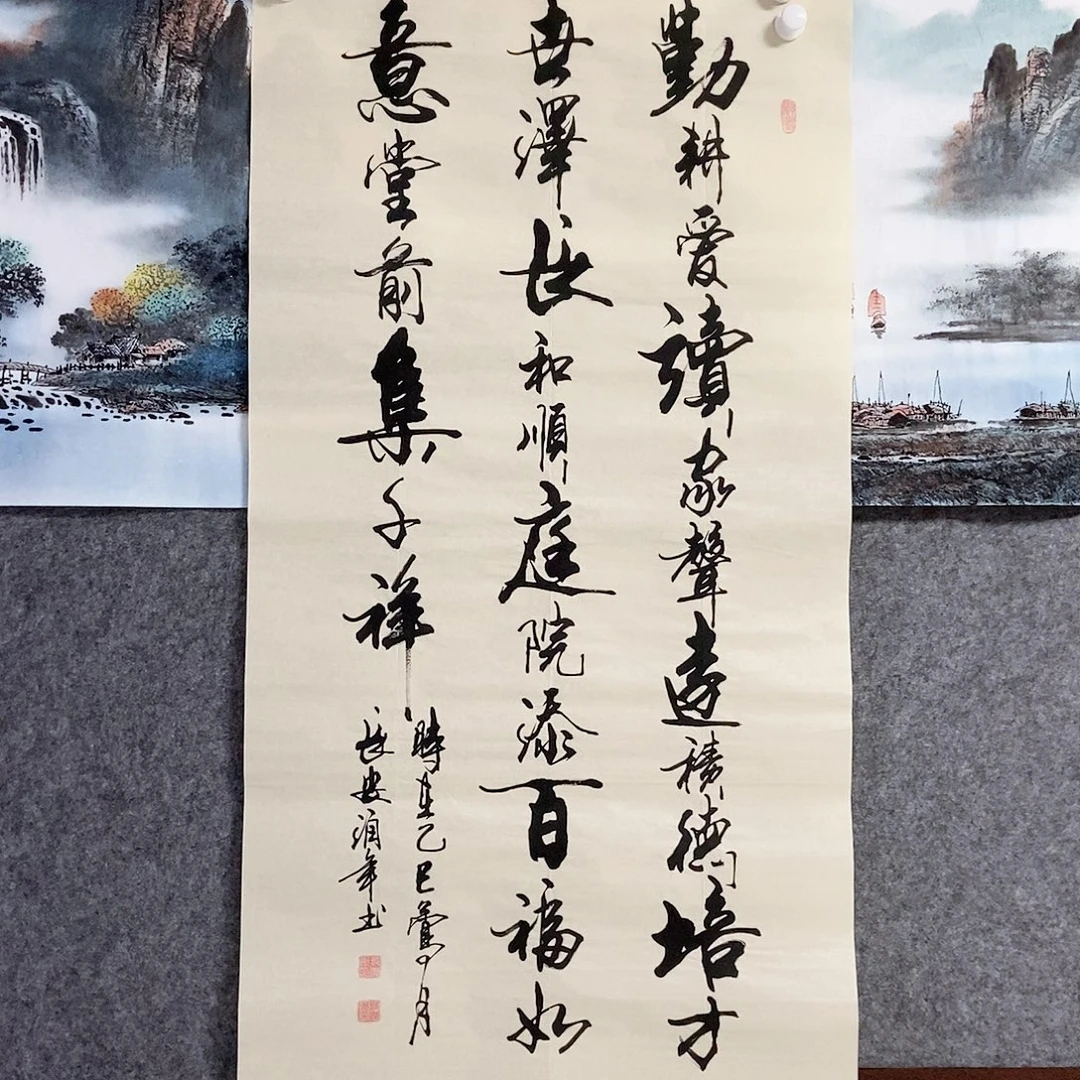 勤耕愛讀家聲遠積德培才
世澤長和順庭院添百福如
意堂前集千祥
時在乙巳月
長安潤年書